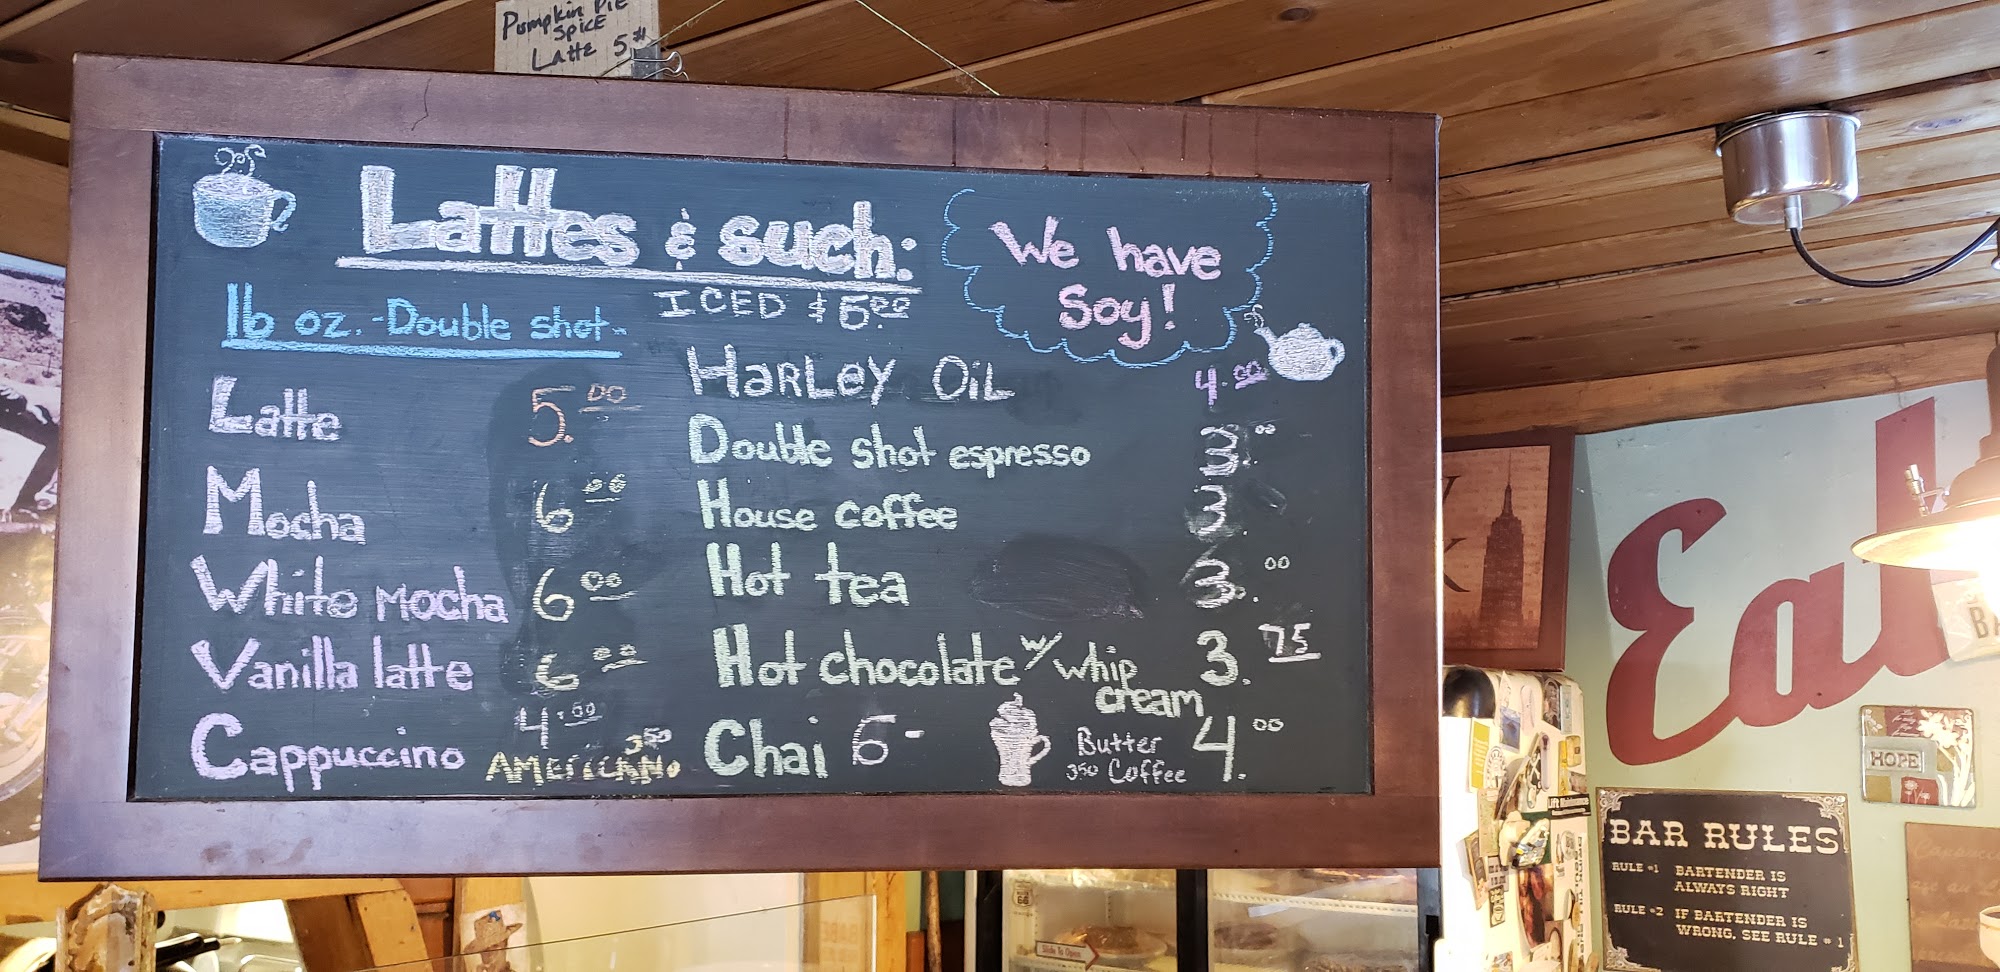 Pumpkin Pie
Spice
Latte 5
Lattes & such:
ICED $5.00
We have
Soy!
16 oz. -Double shot-
Latte 5.00
Mocha 6.00
White Mocha 6.00
Vanilla latte 6.00
Cappuccino 4.50
AMERICANO 350
HARLEY OIL 4.00
Double shot espresso 3.00
House coffee 3.
Hot tea 3.00
Hot chocolate w/ whip cream 3.75
Chai 6-
Butter
350 Coffee
4.00
Eat
HOPE
BAR RULES
RULE #1 BARTENDER IS
ALWAYS RIGHT
RULE #2 IF BARTENDER IS
WRONG, SEE RULE #1
Slide To Open
66